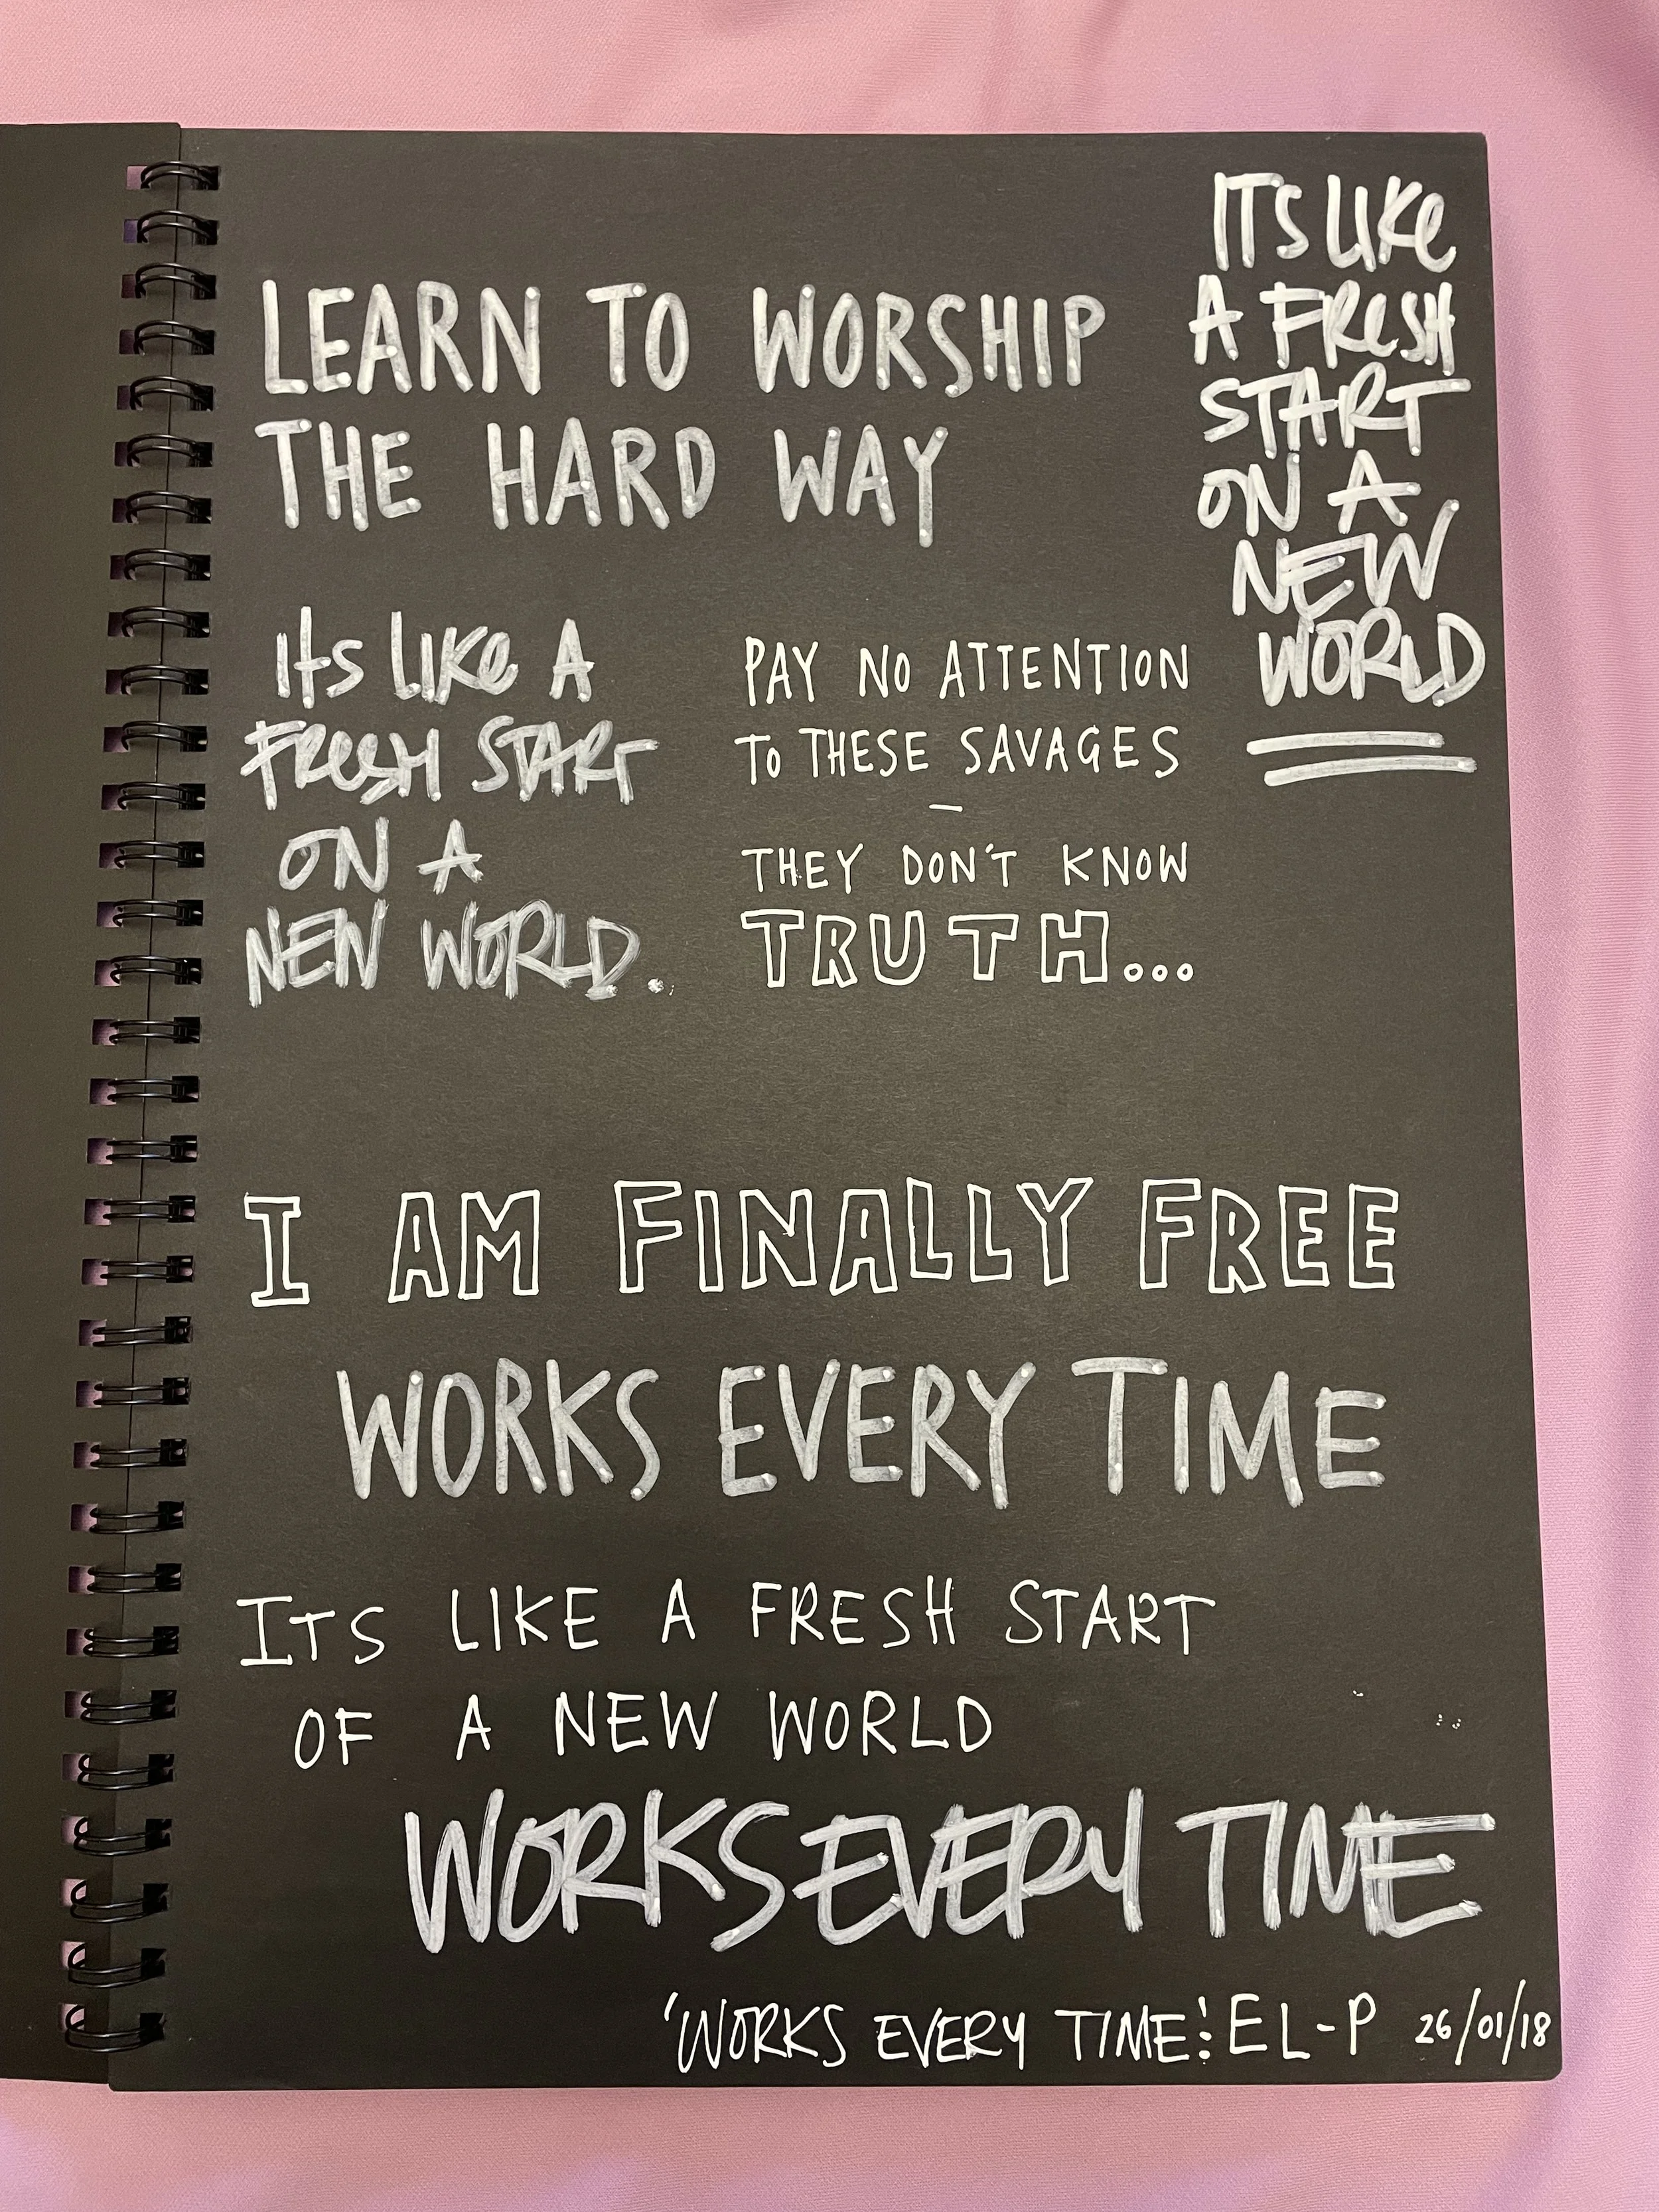 LEARN TO WORSHIP
THE HARD WAY
ITS LIKe
A FReSH
START
ON A
NEW
WORLD
Its LIKe A
FReSH START
ON A
NEW WORLD.
PAY NO ATTENTION
To THESE SAVAGES
—
THEY DON'T KNOW
TRUTH...
I AM FINALLY FREE
WORKS EVERY TIME
ITS LIKE A FRESH START
OF A NEW WORLD
WORKS EVERY TIME
'WORKS EVERY TIME': EL-P 26/01/18